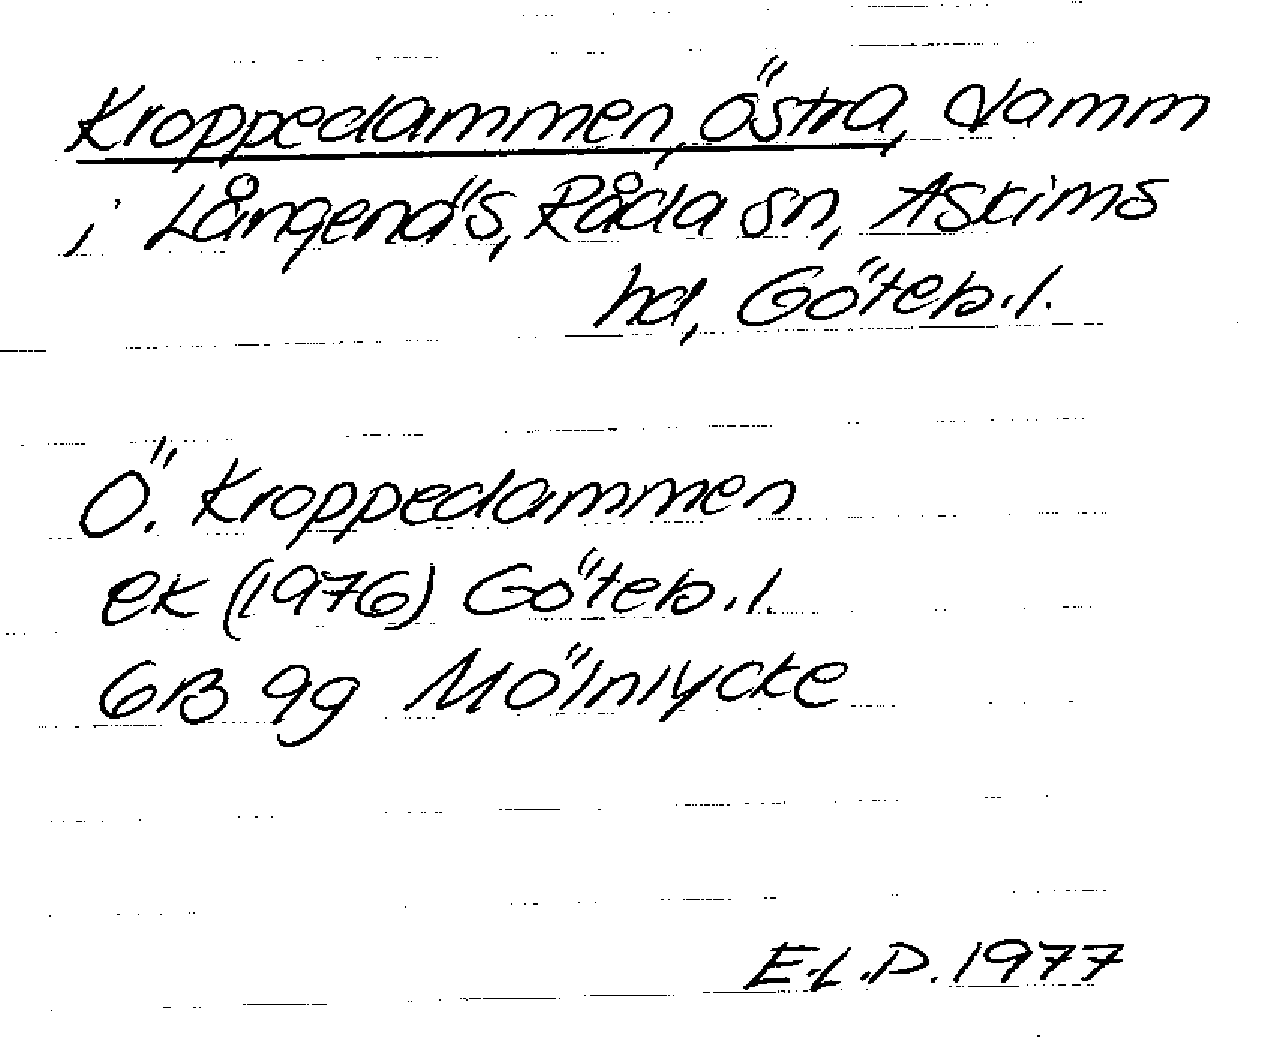 Kroppedammen, östra, damm
i Långenäs, Råda sn, Askims
hd, Göteb.l.
Ö. Kroppedammen
ek (1976) Göteb.l.
6B 9g Mölnlycke
E.L.P. 1977